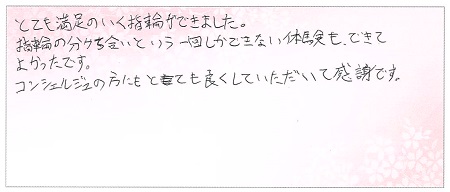 とても満足のいく指輪ができました。
指輪の分かち合いという一回しかできない体験も、できて
よかったです。
コンシェルジュの方にもとても良くしていただいて感謝です。